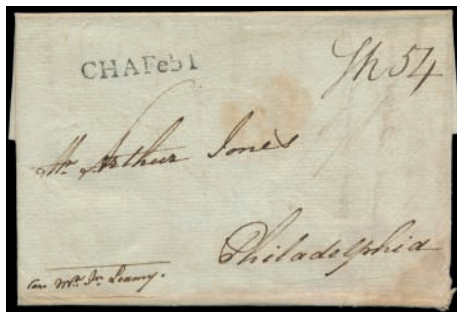 CHAFe51
Sh 54
Mr. Arthur Jones
Philadelphia
Mr. Jn. Leamy.